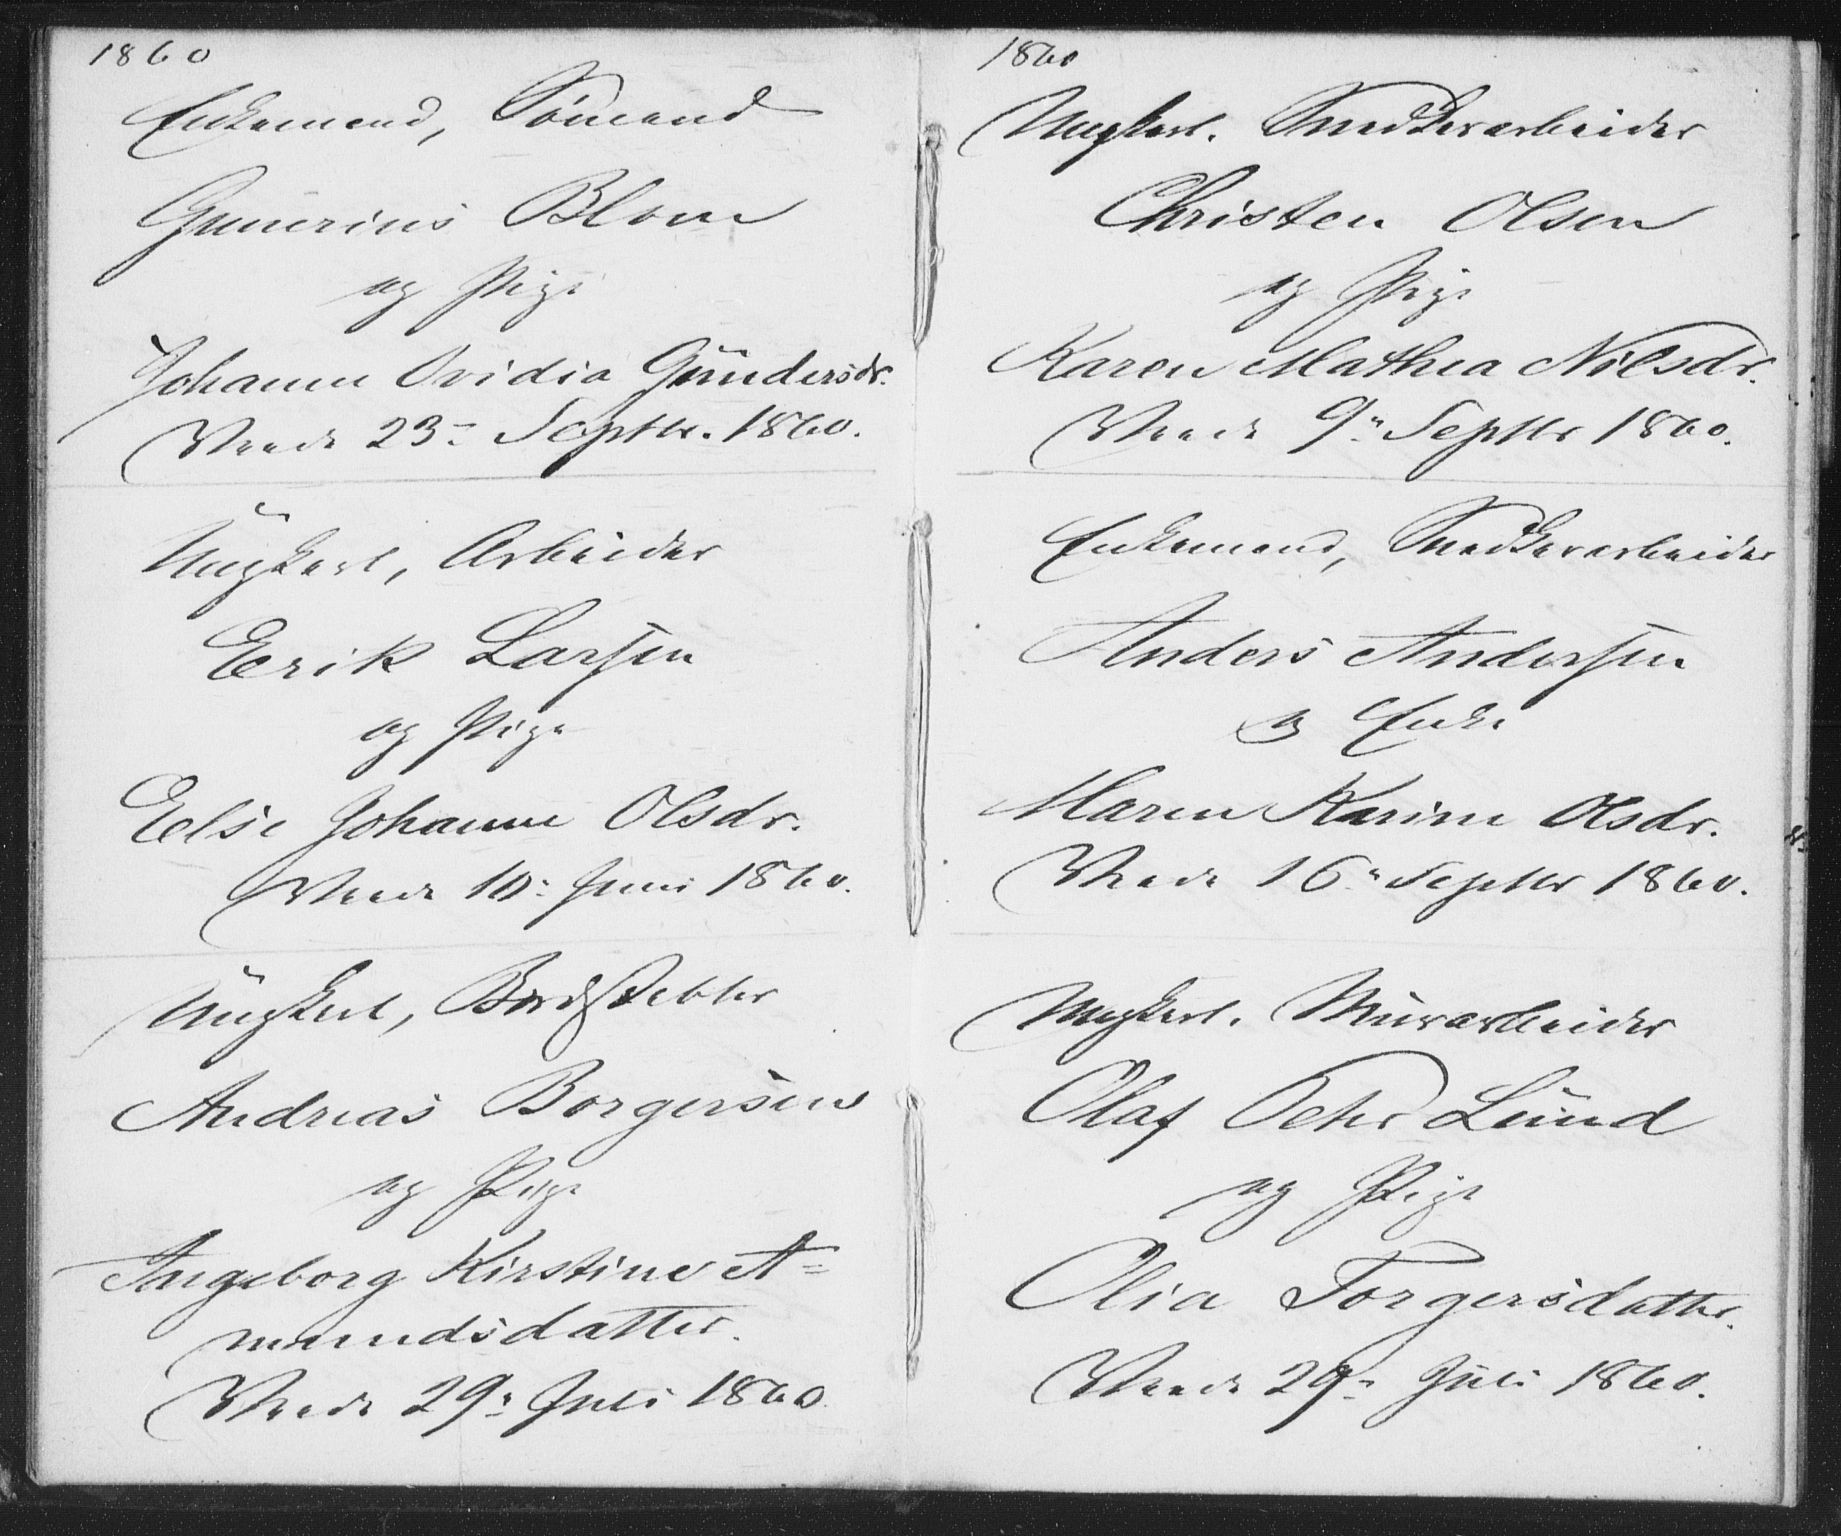 1860
Enkemand, Sömand
Gunerius Blom
og Pige
Johanne Ovidia Gündersdr.
23 Septbr. 1860.
Ungkarl, Arbeider
Erik Larsen
og Pige
Else Johanne Olsdr.
10 Juni 1860.
Ungkarl,
Andreas Borgersen
og Pige
Ingeborg Kirstine A=
mundsdatter.
29 Juli 1860
1860
Ungkarl. Snedkerarbeider
Christen Olsen
og Pige
Karen Mathea Nilsdr.
9 Septbr 1860.
Enkemand, Snedkerarbeider
Anders Andersen
og Enke
Maren Karine Olsdr.
16 Septbr 1860.
Ungkarl. Mürarbeider
Olaf Lünd
og Pige
Olia Torgersdatter.
29 Juli 1860.